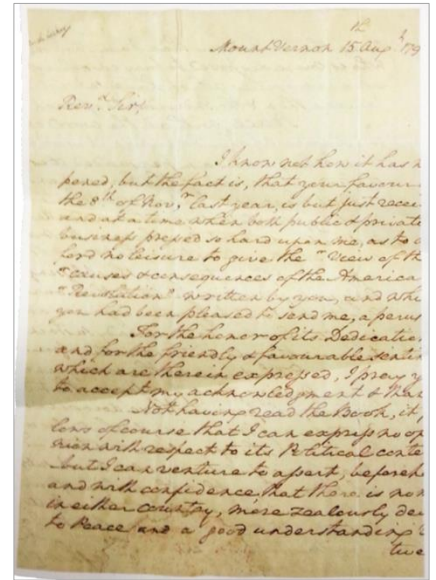 12
Mount Vernon 15 Augt 179
Revd Sir,
I know not how it has
pened, but the fact is, that your favour
the 8th of Novr last year, is but just recei
and at a time when both public & private
business pressed so hard upon me, as to
ford no leisure to give the "View of th
"causes & consequences of the America
"Revolution" written by you, and whi
you had been pleased to send me, a perus
For the honor of its Dedication
and for the friendly & favourable senti
which are therein expressed, I pray y
to accept my acknowledgment & than
Not having read the Book, it
lows of course that I can express no op
nion with respect to its Political conte
but I can venture to assert, beforeh
and with confidence that there is no
in either country, more zealously de
to Peace and a good understanding
twee